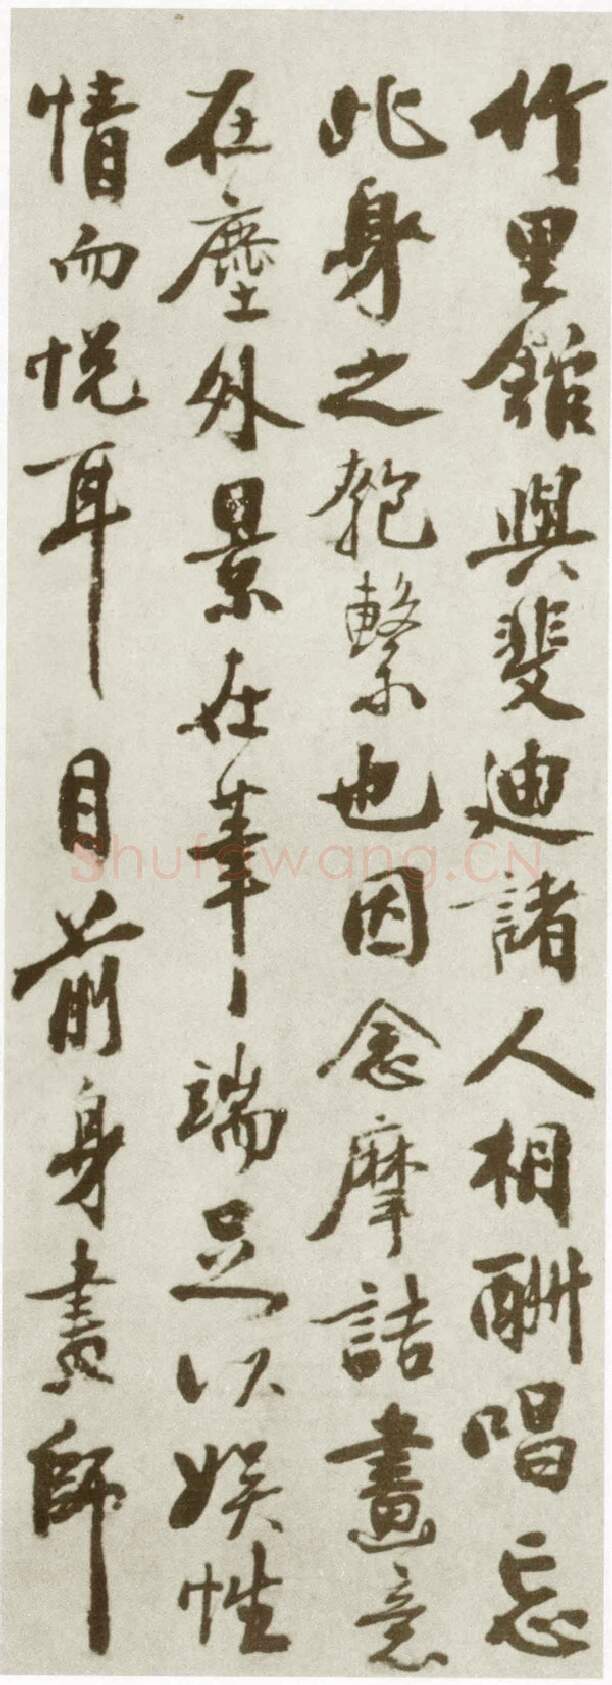 竹里館與斐迪諸人相酬唱忘
此身之匏繫也因念摩詰畫意
在塵外景在筆端足以娛性
情而悅耳目前身畫師
Shufawang.CN